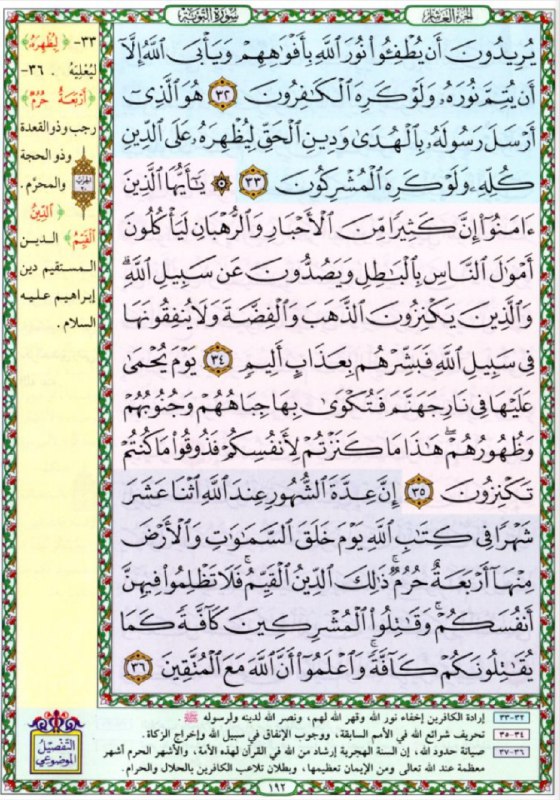 الجزء العاشر
سورة التوبة
يُرِيدُونَ أَن يُطْفِـُٔوا۟ نُورَ ٱللَّهِ بِأَفْوَٰهِهِمْ وَيَأْبَى ٱللَّهُ إِلَّآ
أَن يُتِمَّ نُورَهُۥ وَلَوْ كَرِهَ ٱلْكَـٰفِرُونَ ٣٢ هُوَ ٱلَّذِىٓ
أَرْسَلَ رَسُولَهُۥ بِٱلْهُدَىٰ وَدِينِ ٱلْحَقِّ لِيُظْهِرَهُۥ عَلَى ٱلدِّينِ
كُلِّهِۦ وَلَوْ كَرِهَ ٱلْمُشْرِكُونَ ٣٣ ۞ يَـٰٓأَيُّهَا ٱلَّذِينَ
ءَامَنُوٓا۟ إِنَّ كَثِيرًا مِّنَ ٱلْأَحْبَارِ وَٱلرُّهْبَانِ لَيَأْكُلُونَ
أَمْوَٰلَ ٱلنَّاسِ بِٱلْبَـٰطِلِ وَيَصُدُّونَ عَن سَبِيلِ ٱللَّهِ ۗ
وَٱلَّذِينَ يَكْنِزُونَ ٱلذَّهَبَ وَٱلْفِضَّةَ وَلَا يُنفِقُونَهَا
فِى سَبِيلِ ٱللَّهِ فَبَشِّرْهُم بِعَذَابٍ أَلِيمٍ ٣٤ يَوْمَ يُحْمَىٰ
عَلَيْهَا فِى نَارِ جَهَنَّمَ فَتُكْوَىٰ بِهَا جِبَاهُهُمْ وَجُنُوبُهُمْ
وَظُهُورُهُمْ ۖ هَـٰذَا مَا كَنَزْتُمْ لِأَنفُسِكُمْ فَذُوقُوا۟ مَا كُنتُمْ
تَكْنِزُونَ ٣٥ إِنَّ عِدَّةَ ٱلشُّهُورِ عِندَ ٱللَّهِ ٱثْنَا عَشَرَ
شَهْرًا فِى كِتَـٰبِ ٱللَّهِ يَوْمَ خَلَقَ ٱلسَّمَـٰوَٰتِ وَٱلْأَرْضَ
مِنْهَآ أَرْبَعَةٌ حُرُمٌ ۚ ذَٰلِكَ ٱلدِّينُ ٱلْقَيِّمُ ۚ فَلَا تَظْلِمُوا۟ فِيهِنَّ
أَنفُسَكُمْ ۚ وَقَـٰتِلُوا۟ ٱلْمُشْرِكِينَ كَآفَّةً كَمَا
يُقَـٰتِلُونَكُمْ كَآفَّةً ۚ وَٱعْلَمُوٓا۟ أَنَّ ٱللَّهَ مَعَ ٱلْمُتَّقِينَ ٣٦
٣٣- ﴿لِيُظْهِرَهُ﴾
ليُعْلِيَهُ . ٣٦-
﴿أَرْبَعَةٌ حُرُمٌ﴾
رجب وذو القعدة
وذو الحجة
والمحرَّم .
﴿الدِّينُ
الْقَيِّمُ﴾ الـديـن
المستقيم دين
إبراهيم عليـه
السلام .
٣٢-٣٣ إرادة الكافرين إخفاء نور الله وقهر الله لهم، ونصر الله لدينه ولرسوله ﷺ .
٣٤-٣٥ تحريف شرائع الله في الأمم السابقة، ووجوب الإنفاق في سبيل الله وإخراج الزكاة.
٣٦-٣٧ صيانة حدود الله، إن السنة الهجرية إرشاد من الله في القرآن لهذه الأمة، والأشهر الحرم أشهر
معظمة عند الله تعالى ومن الإيمان تعظيمها، وبطلان تلاعب الكافرين بالحلال والحرام.
التفصيل
الموضوعي
١٩٢